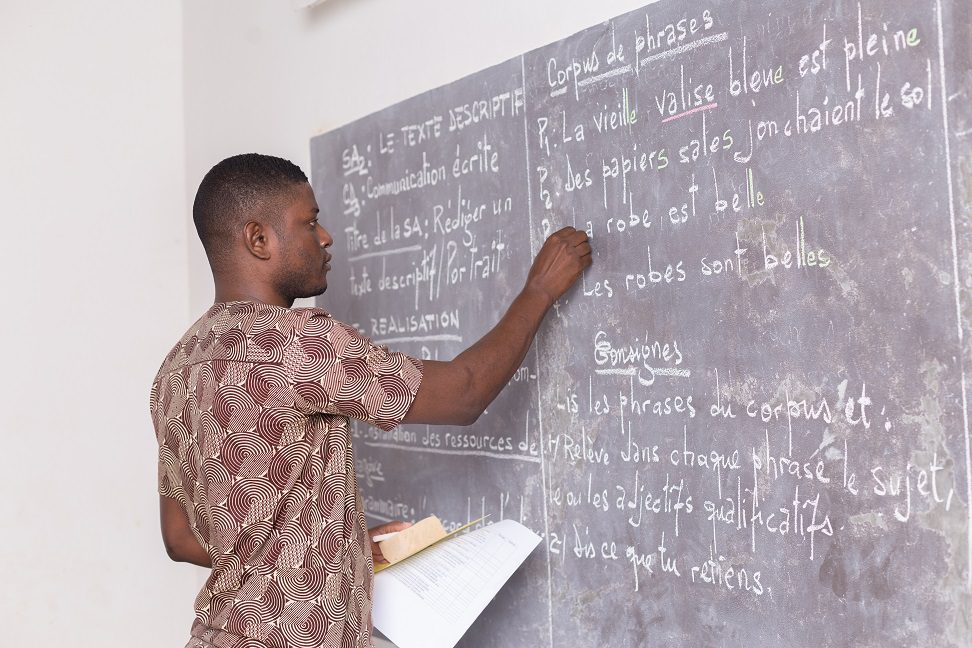 SA2: LE TEXTE DESCRIPTIF
CA3: Communication écrite
Titre de la SA: Rédiger un
texte descriptif / Portrait
REALISATION
des ressources de
grammaire:
Corpus de phrases
P1: La vieille valise bleue est pleine
P2: Des papiers sales jonchaient le sol
la robe est belle
Les robes sont belles
Consignes
Lis les phrases du corpus et:
1/ Relève dans chaque phrase le sujet,
le ou les adjectifs qualificatifs.
2/ Dis ce que tu retiens.